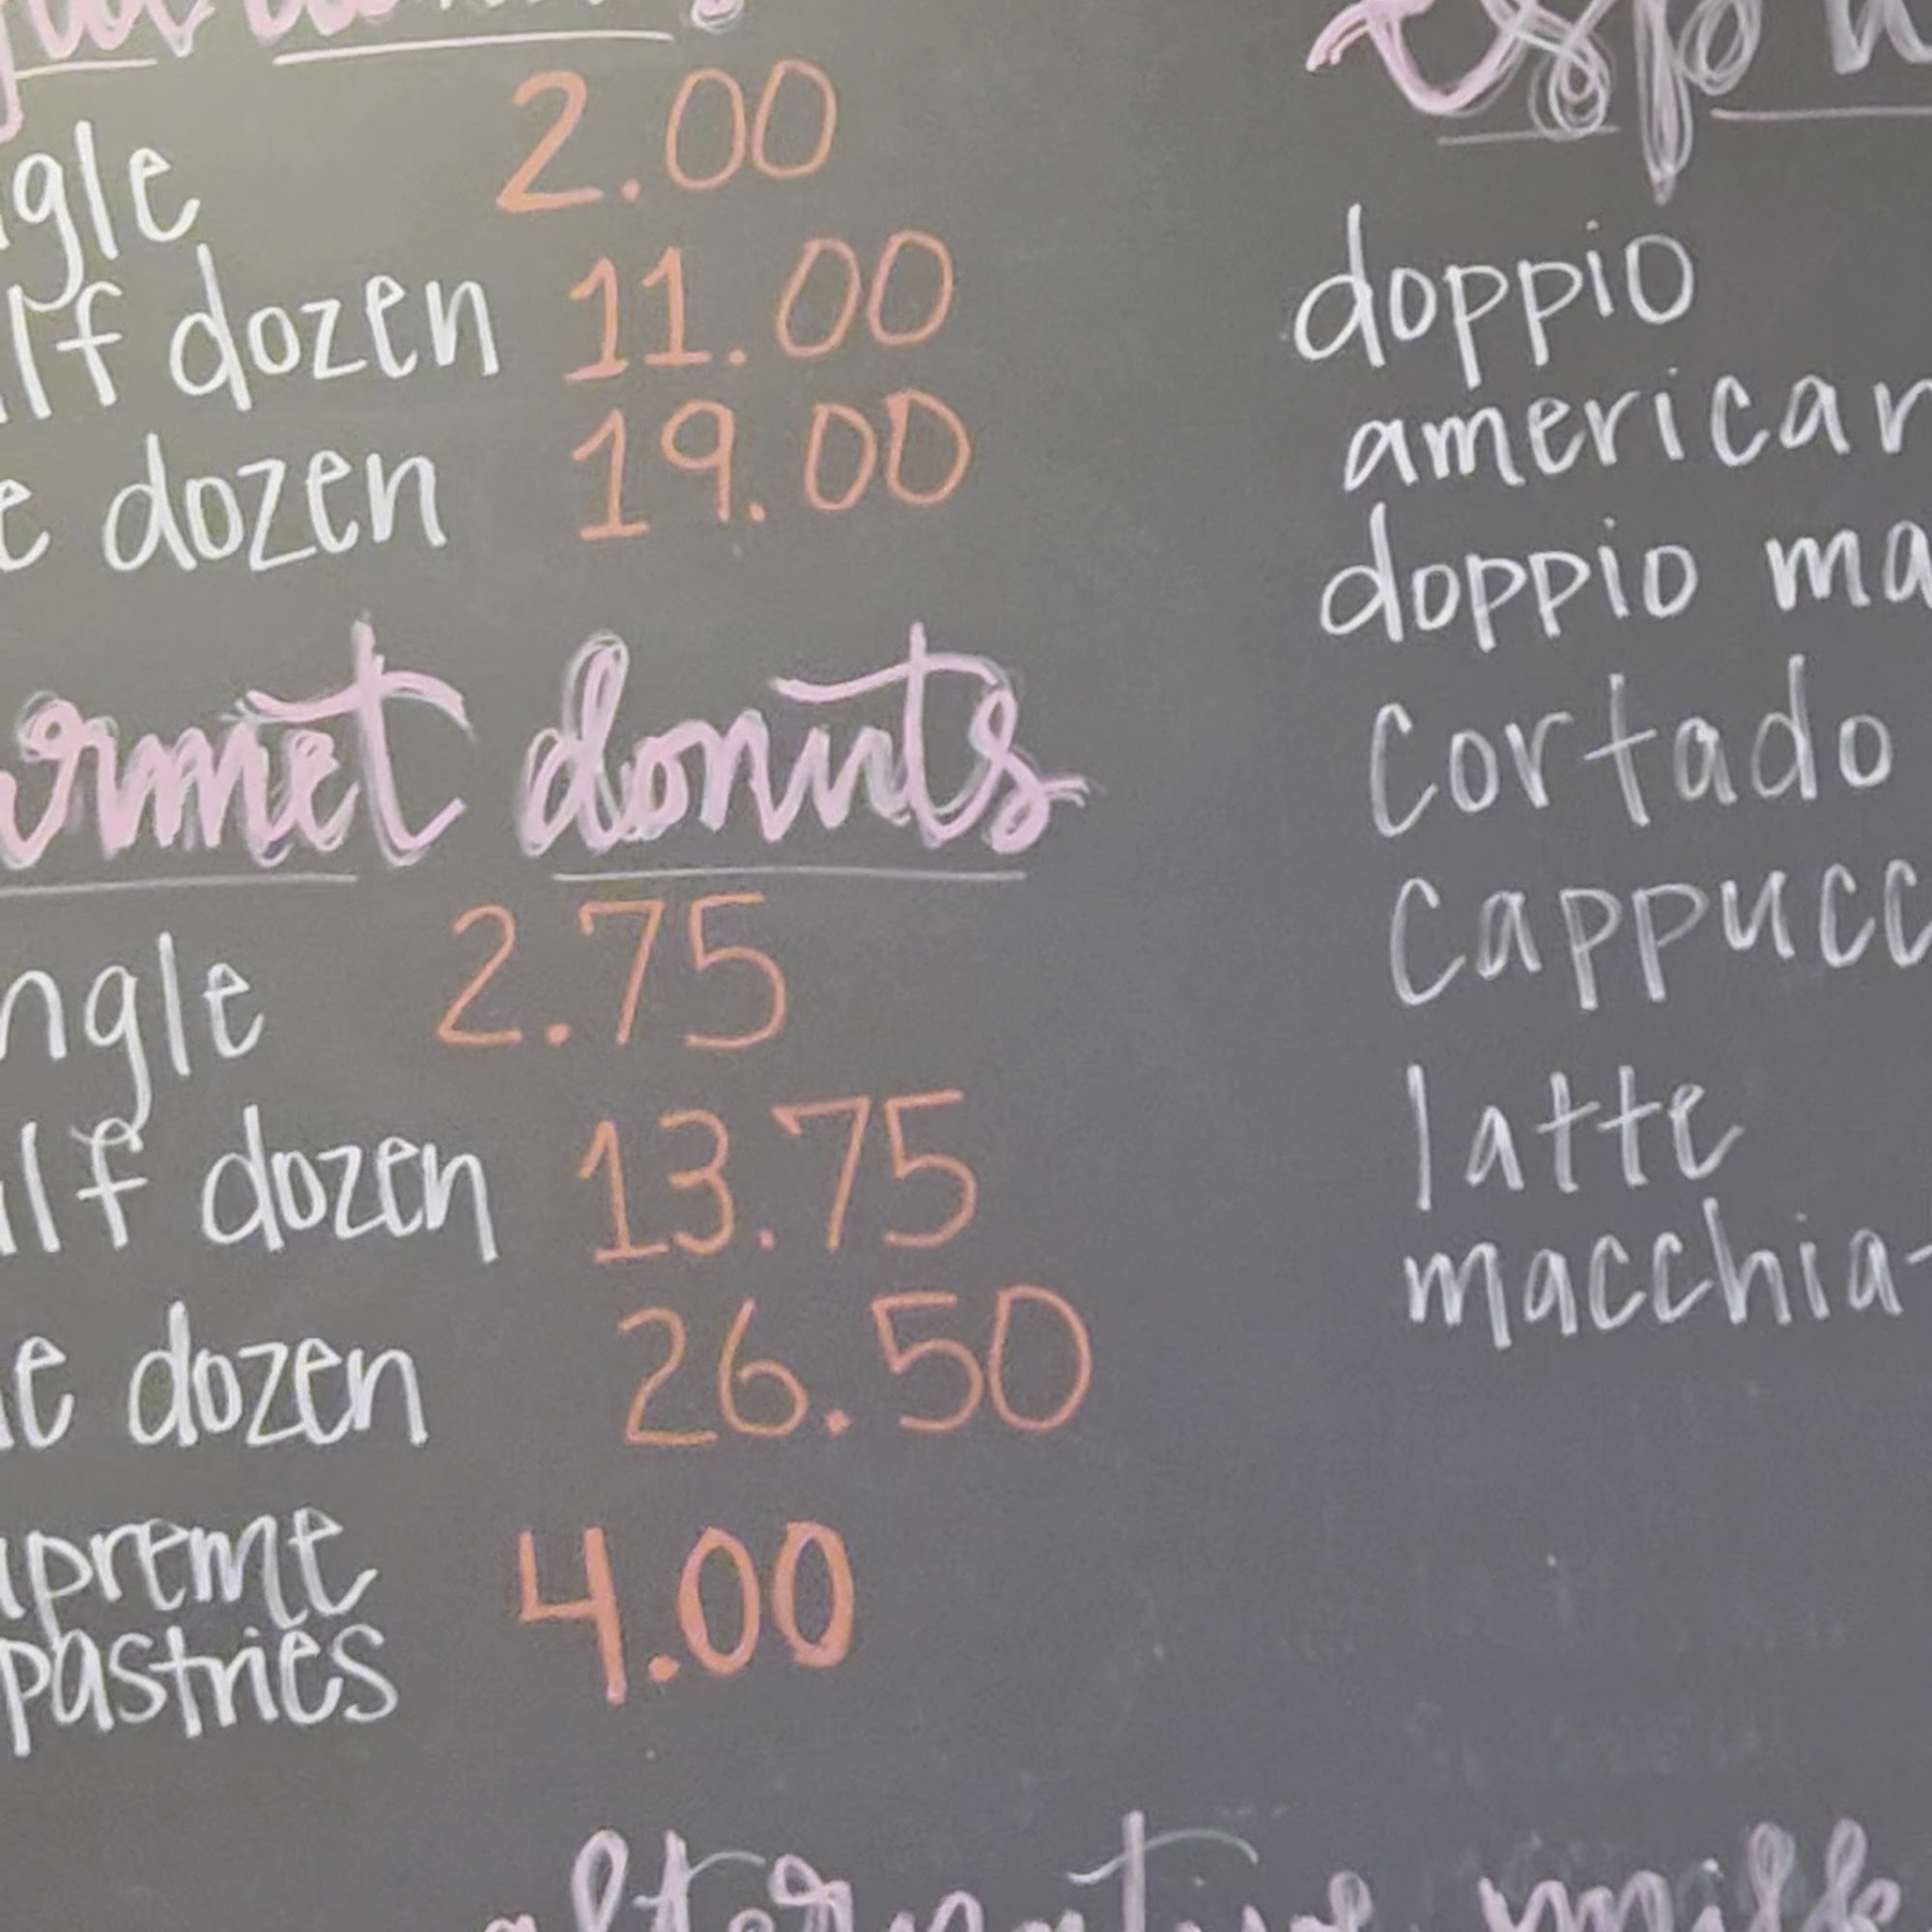 ngle 2.00
alf dozen 11.00
e dozen 19.00
urmet donuts
ngle 2.75
alf dozen 13.75
ne dozen 26.50
upreme
pastries 4.00
doppio
american
doppio ma
cortado
cappucc
latte
macchia-
alternative milk